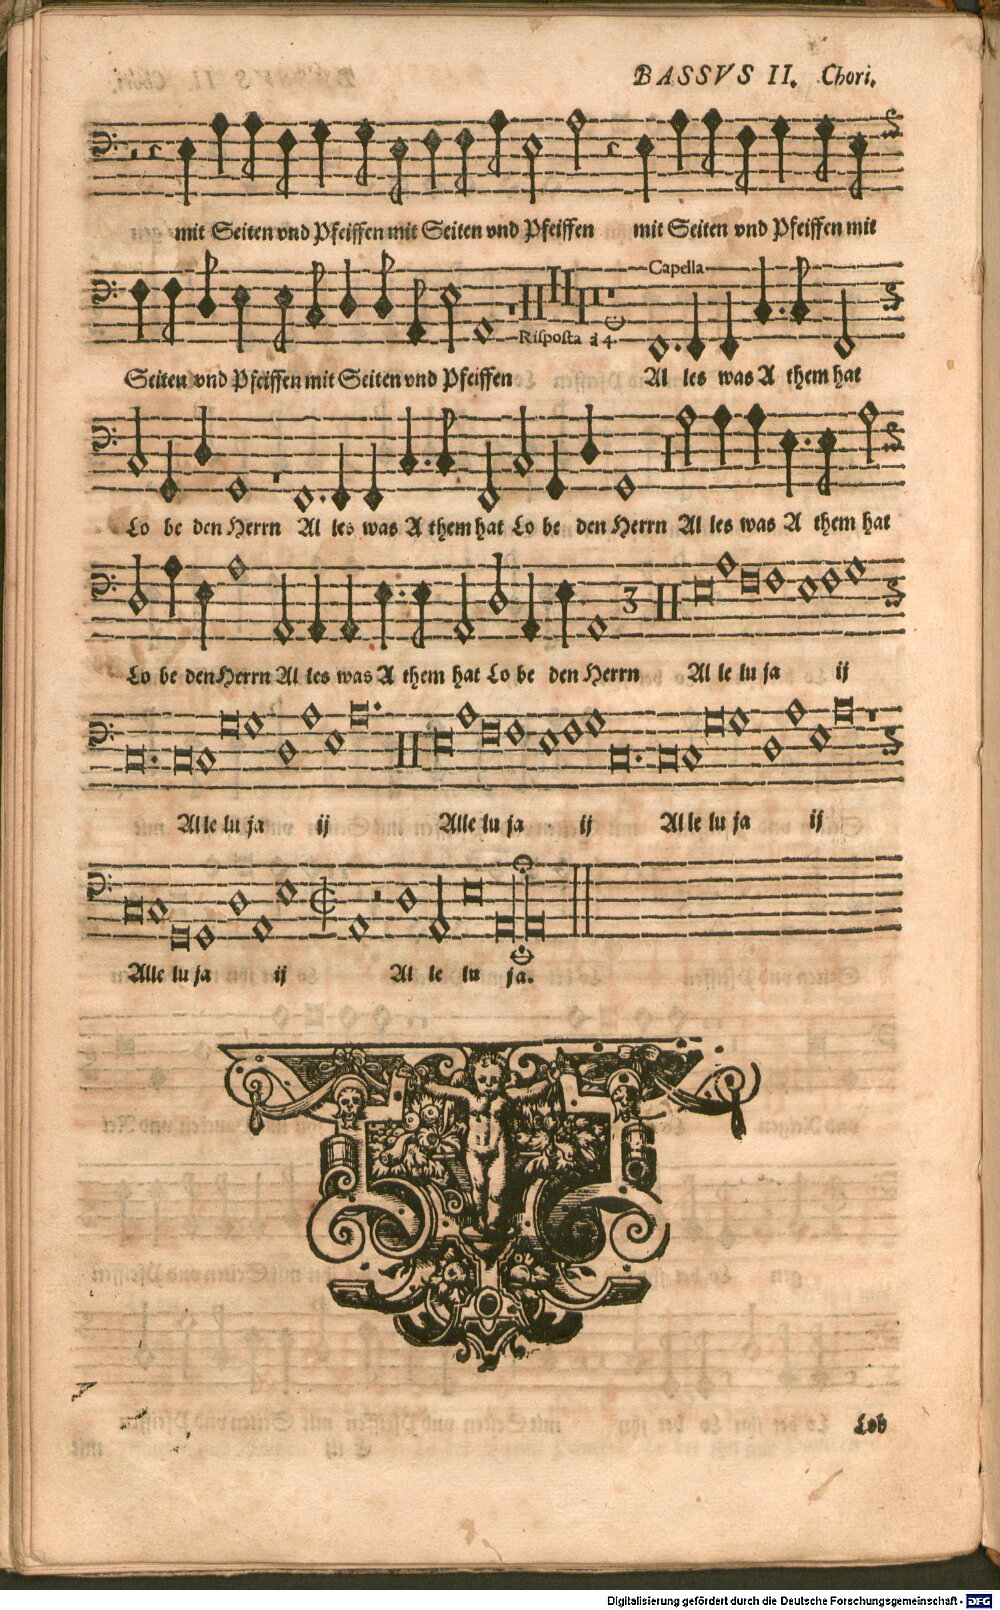 BASSVS II. Chori.
mit Seiten vnd Pfeiffen mit Seiten vnd Pfeiffen mit Seiten vnd Pfeiffen mit
Capella
Risposta à 4
Seiten vnd Pfeiffen mit Seiten vnd Pfeiffen Al les was A them hat
Lo be den Herrn Al les was A them hat Lo be den Herrn Al les was A them hat
3
Lo be den Herrn Al les was A them hat Lo be den Herrn Al le lu ja ij
Alle lu ja ij Alle lu ja ij Al le lu ja ij
Alle lu ja ij Al le lu ja.
Lob
Digitalisierung gefördert durch die Deutsche Forschungsgemeinschaft - DFG